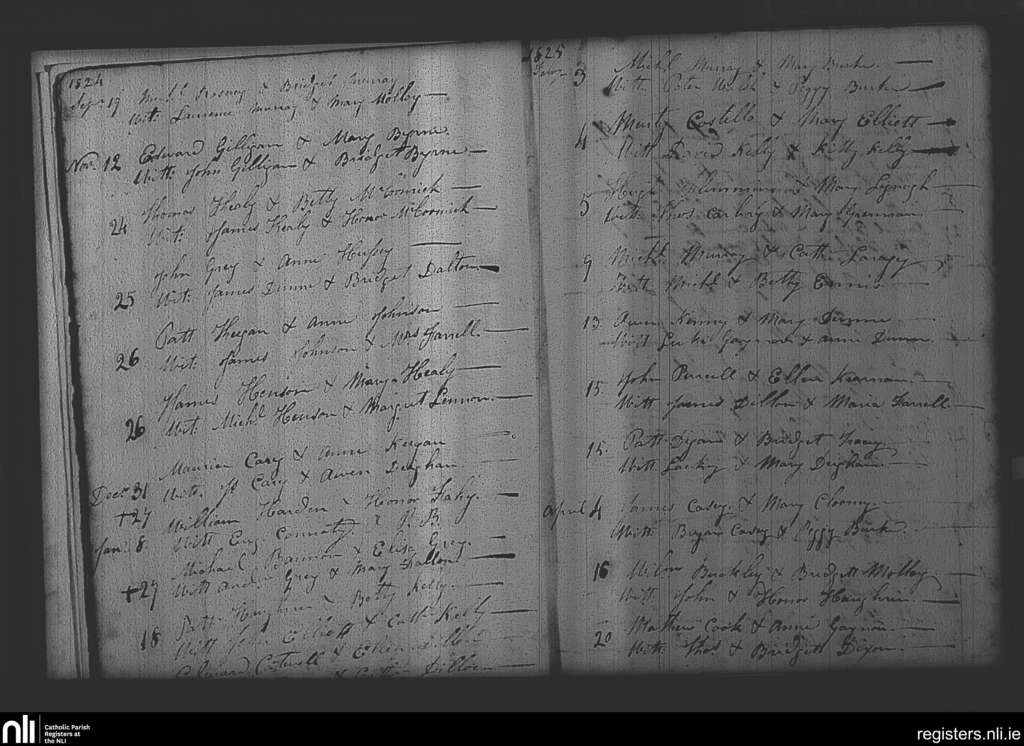 1824
Sepr 19 Michl Rooney & Bridget Murray
Wit: Laurence Murray & Mary Molloy
Novr 12 Edward Gilligan & Mary Byrne
Witt: John Gilligan & Bridget Byrne
24 Thomas Healy & Betty McCormick
Wit: James Healy & Honor McCormick
John Grey & Anne Hussey
25 Wit: James Dunne & Bridget Dalton
Patt Keegan & Anne Johnson
26 Wit: James Johnson & Farrell
James Henson & Mary Healy
26 Wit: Michl Henson & Margret Lennon
Maurice Casey & Anne Keegan
Decr 31 Witt: Casey & Owen Deighan
+27 William Harden & Honor Fahy
Jan: 8 Witt Connety & P. B.
Michael Bannon & Eliza Grey
+27 Witt Grey & Mary Fallon
Patt Haughren & Betty Kelly
18 Witt John Elliott & Cath Kelly
Edward
Dillon
1825
Jany 3 Michl Murray & Mary Burke
Witt Peter Walsh & Peggy Burke
4 Murty Costello & Mary Elliott
Witt David Kelly & Kitty Kelly
5 Hugh & Mary Lynagh
Witt: Thos Carboly & Mary
9 Michl Murray & Cath
Witt Michl & Betty Ennis
13 Owen Kenny & Mary Dunne
Witt Luke Gaynor & Anne Dunne
15 John Purcell & Ellen Kearnan
Witt James Dillon & Maria Farrell
15 Patt Digan & Bridgett Tracy
Witt Lacky & Mary Deighan
April 4 James Casey & Mary Clooney
Witt: Bryan Casey & Peggy Burke
16 Wilm Buckley & Bridgett Molloy
Witt: John & Honor Haughren
20 Mathew Cook & Anne Gaynor
Witt: Thos & Bridgett Dixon
nli
Catholic Parish
Registers at
the NLI
registers.nli.ie